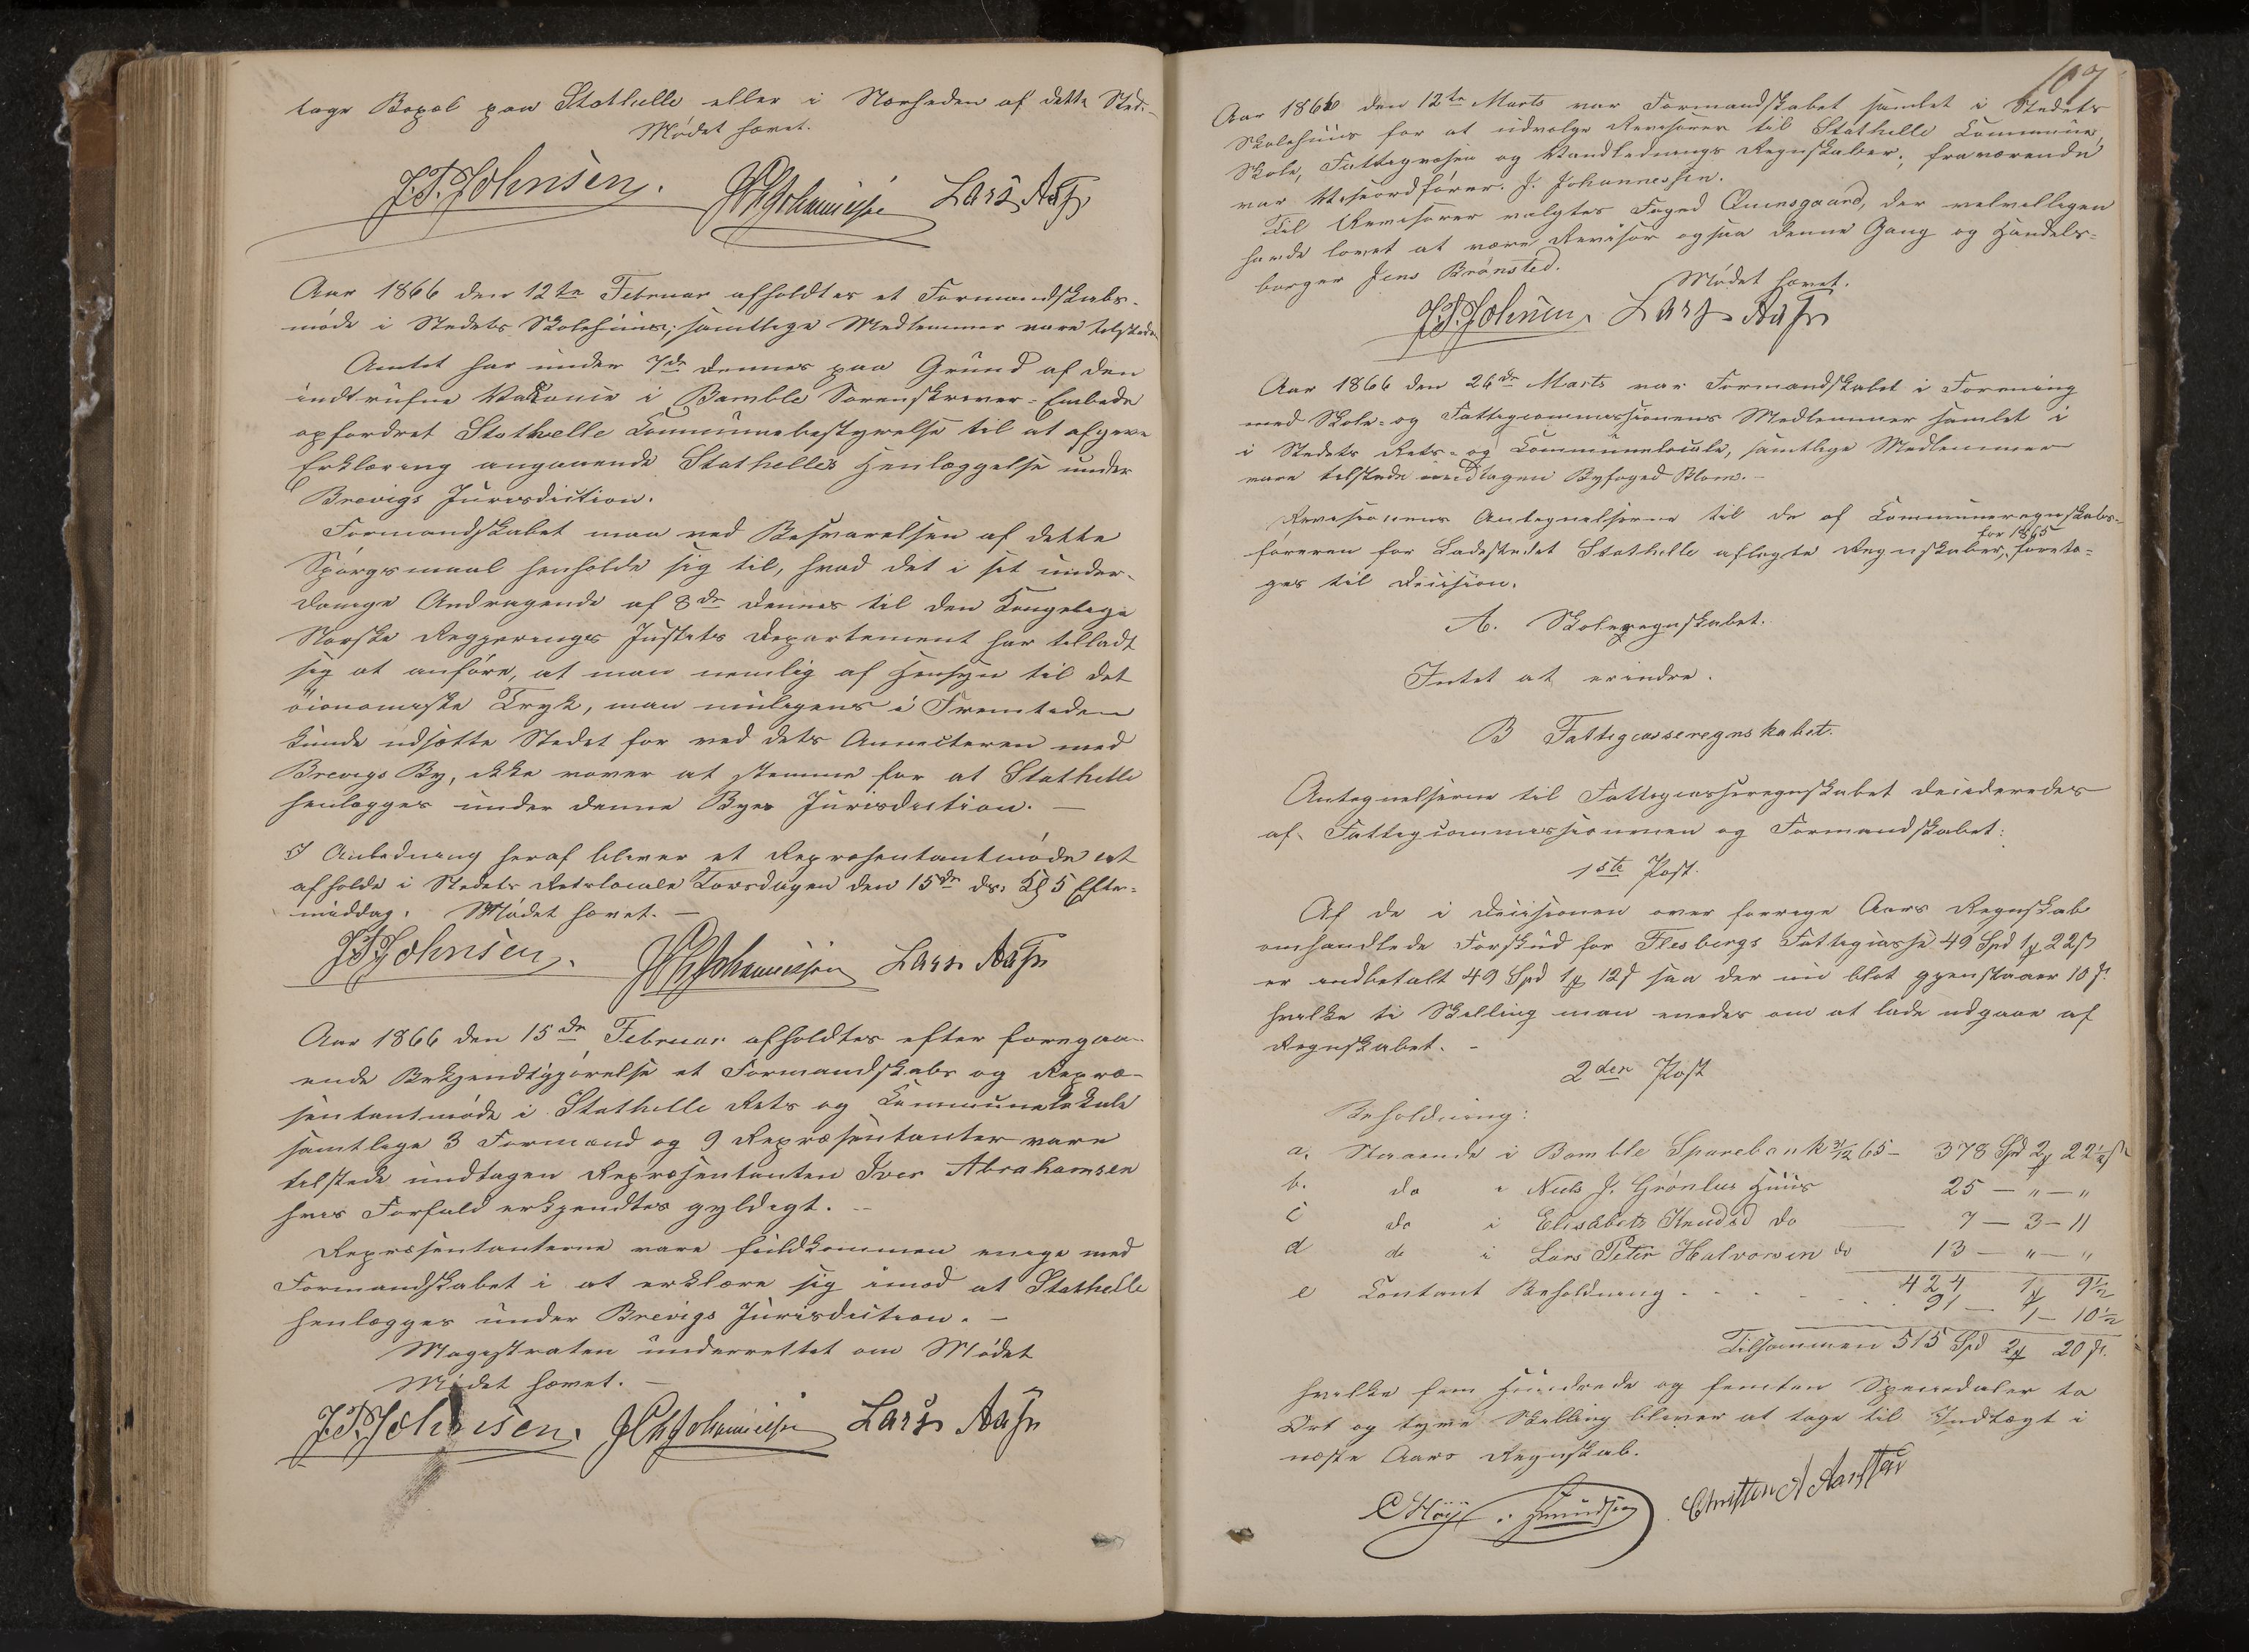 tage Bopæl paa Stathelle eller i Nærheden af dette Sted.
Mødet hævet.
J. P. Johnsen. Lars
Aar 1866 den 12te Februar afholdtes et Formandskabs-
møde i Stedets Skolehuus; samtlige Medlemmer vare tilstede
Amtet har under 7de dennes paa Grund af den
indtrufne Vakance i Bamble Sorenskriver-Embede
opfordret Stathelle Communebestyrelse til at afgive
Erklæring angaaende Stathelles Henlæggelse under
Brevigs Jurisdiction.
Formandskabet maa ved Besvarelsen af dette
Spørgsmaal henholde sig til, hvad det i sit under-
danige Andragende af 8de dennes til den Kongelige
Norske Regjerings Justits Departement har tilladt
sig at anføre, at man nemlig af Hensyn til det
øconomiske Tryk, man muligens i Fremtiden
kunde udsætte Stedet for ved dets Annecteren med
Brevigs By, ikke vover at stemme for at Stathelle
henlægges under denne Byes Jurisdiction. —
I Anledning heraf bliver et Repræsentantmøde at
afholde i Stedets Retslocale Torsdagen den 15de ds. Kl 5 Efter-
middag. Mødet hævet. —
J. P. Johnsen. Lars
Aar 1866 den 15de Februar afholdtes efter foregaa-
ende Bekjendtgjørelse et Formandskabs og Repræ-
sentantmøde i Stathelle Rets og Communelokale
samtlige 3 Formænd og 9 Repræsentanter vare
tilstede undtagen Repræsentanten Iver Abrahamsen
hvis Forfald erkjendtes gyldigt. —
Repræsentanterne vare fuldkommen enige med
Formandskabet i at erklære sig imod at Stathelle
henlægges under Brevigs Jurisdiction. —
Magistraten underrettet om Mødet
Mødet hævet. —
J. P. Johnsen. Lars
107
Aar 1866 den 12te Marts var Formandskabet samlet i Stedets
Skolehuus for at udvælge Revisorer til Stathelle Commune,
Skole, Fattigvæsen og Vandlednings Regnskaber; fraværende
var Viceordfører J. Johannessen.
Til Revisorer valgtes Foged Quensgaard, der velvilligen
havde lovet at være Revisor ogsaa denne Gang og Handels-
borger Jens Brønsted.
Mødet hævet.
J. P. Johnsen. Lars
Aar 1866 den 26de Marts var Formandskabet i Forening
med Skole- og Fattigcommissionens Medlemmer samlet i
i Stedets Rets- og Communelocale, samtlige Medlemmer
vare tilstede undtagen Byfoged Blom. —
Revisionens Antegnelserne til de af Communeregnskabs-
for 1865
føreren for Ladestedet Stathelle aflagte Regnskaber, foreto-
ges til Decision.
A. Skoleregnskabet.
Intet at erindre.
B Fattigcasseregnskabet.
Antegnelserne til Fattigcasseregnskabet decideredes
af Fattigcommissionen og Formandskabet:
1ste Post.
Af de i Decisionen over forrige Aars Regnskab
omhandlede Forskud for Flesbergs Fattigcasse 49 Spd 1 22 ß
er indbetalt 49 Spd 1 12 ß saa der nu blot gjenstaaer 10 ß.
hvilke ti Skilling man enedes om at lade udgaae af
Regnskabet. —
2den Post
Beholdning:
a. Staaende i Bamble Sparebank 31/12 65 — 378 Spd 2 22½ ß
b. do i Niels J. Grønlus Huus 25 — " — "
c do i Elisabeth Knudsd do 7 — 3 — 11
d do i Lars Peter Halvorsen do 13 — " — "
424 1 9½
e Contant Beholdning 91 — 1 — 10½
Tilsammen 515 Spd 2 20 ß.
hvilke fem Hundrede og femten Speciedaler to
Ort og tyve Skilling bliver at tage til Indtægt i
næste Aars Regnskab.